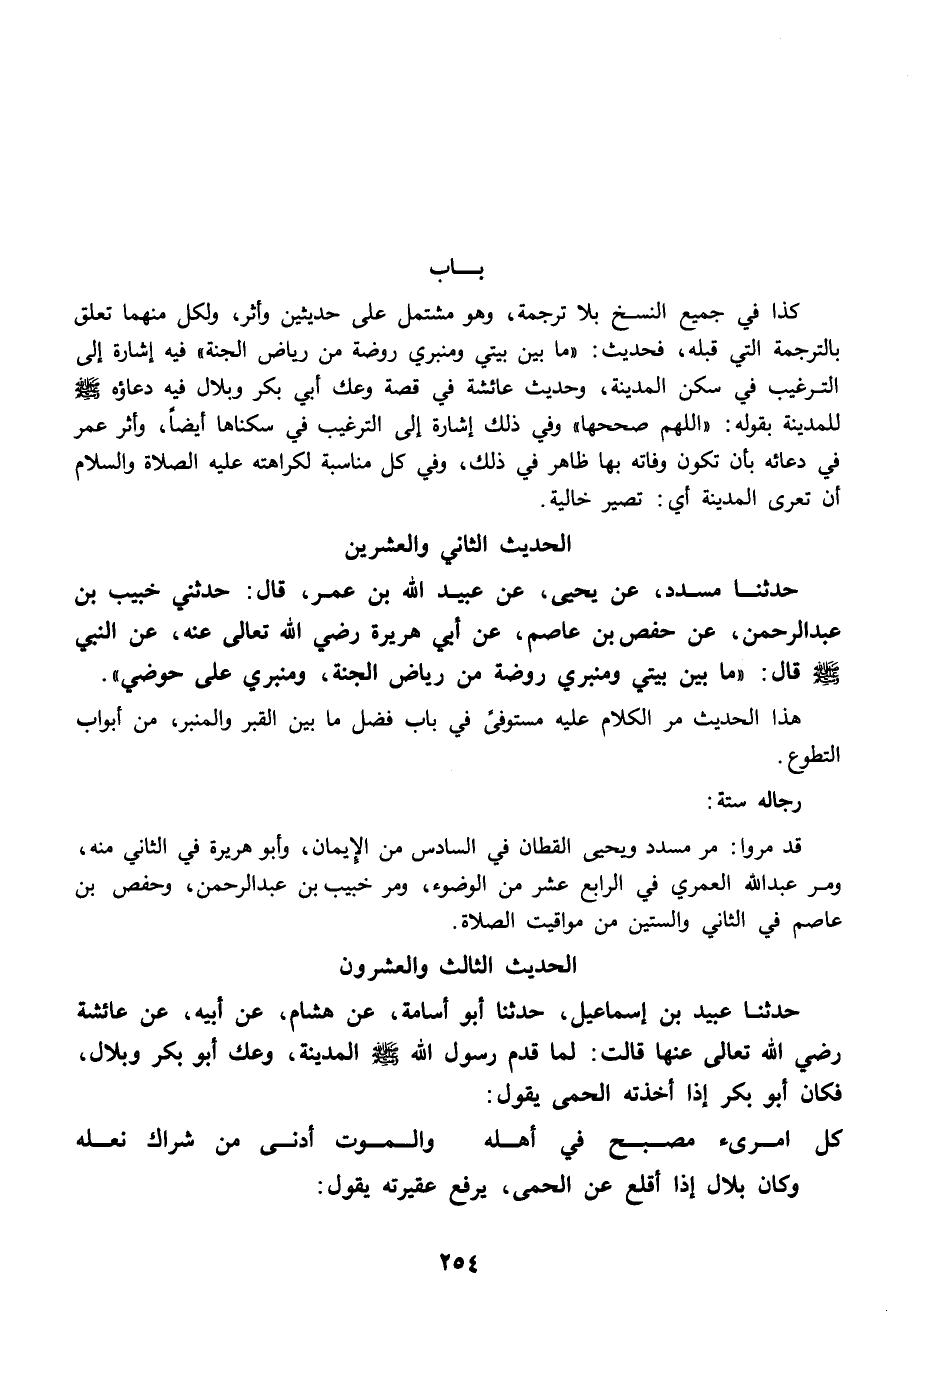 بـــاب
كذا في جميع النسخ بلا ترجمة، وهو مشتمل على حديثين وأثر، ولكل منهما تعلق
بالترجمة التي قبله، فحديث: «ما بين بيتي ومنبري روضة من رياض الجنة» فيه إشارة إلى
الترغيب في سكن المدينة، وحديث عائشة في قصة وعك أبي بكر وبلال فيه دعاؤه ﷺ
للمدينة بقوله: «اللهم صححها» وفي ذلك إشارة إلى الترغيب في سكناها أيضاً، وأثر عمر
في دعائه بأن تكون وفاته بها ظاهر في ذلك، وفي كل مناسبة لكراهته عليه الصلاة والسلام
أن تعرى المدينة أي: تصير خالية.
الحديث الثاني والعشرين
حدثنا مسدد، عن يحيى، عن عبيد الله بن عمر، قال: حدثني خبيب بن
عبدالرحمن، عن حفص بن عاصم، عن أبي هريرة رضي الله تعالى عنه، عن النبي
ﷺ قال: «ما بين بيتي ومنبري روضة من رياض الجنة، ومنبري على حوضي».
هذا الحديث مر الكلام عليه مستوفىً في باب فضل ما بين القبر والمنبر، من أبواب
التطوع.
رجاله ستة:
قد مروا: مر مسدد ويحيى القطان في السادس من الإيمان، وأبو هريرة في الثاني منه،
ومر عبدالله العمري في الرابع عشر من الوضوء، ومر خبيب بن عبدالرحمن، وحفص بن
عاصم في الثاني والستين من مواقيت الصلاة.
الحديث الثالث والعشرون
حدثنا عبيد بن إسماعيل، حدثنا أبو أسامة، عن هشام، عن أبيه، عن عائشة
رضي الله تعالى عنها قالت: لما قدم رسول الله ﷺ المدينة، وعك أبو بكر وبلال،
فكان أبو بكر إذا أخذته الحمى يقول:
كل امرىء مصبح في أهله والموت أدنى من شراك نعله
وكان بلال إذا أقلع عن الحمى، يرفع عقيرته يقول:
٢٥٤